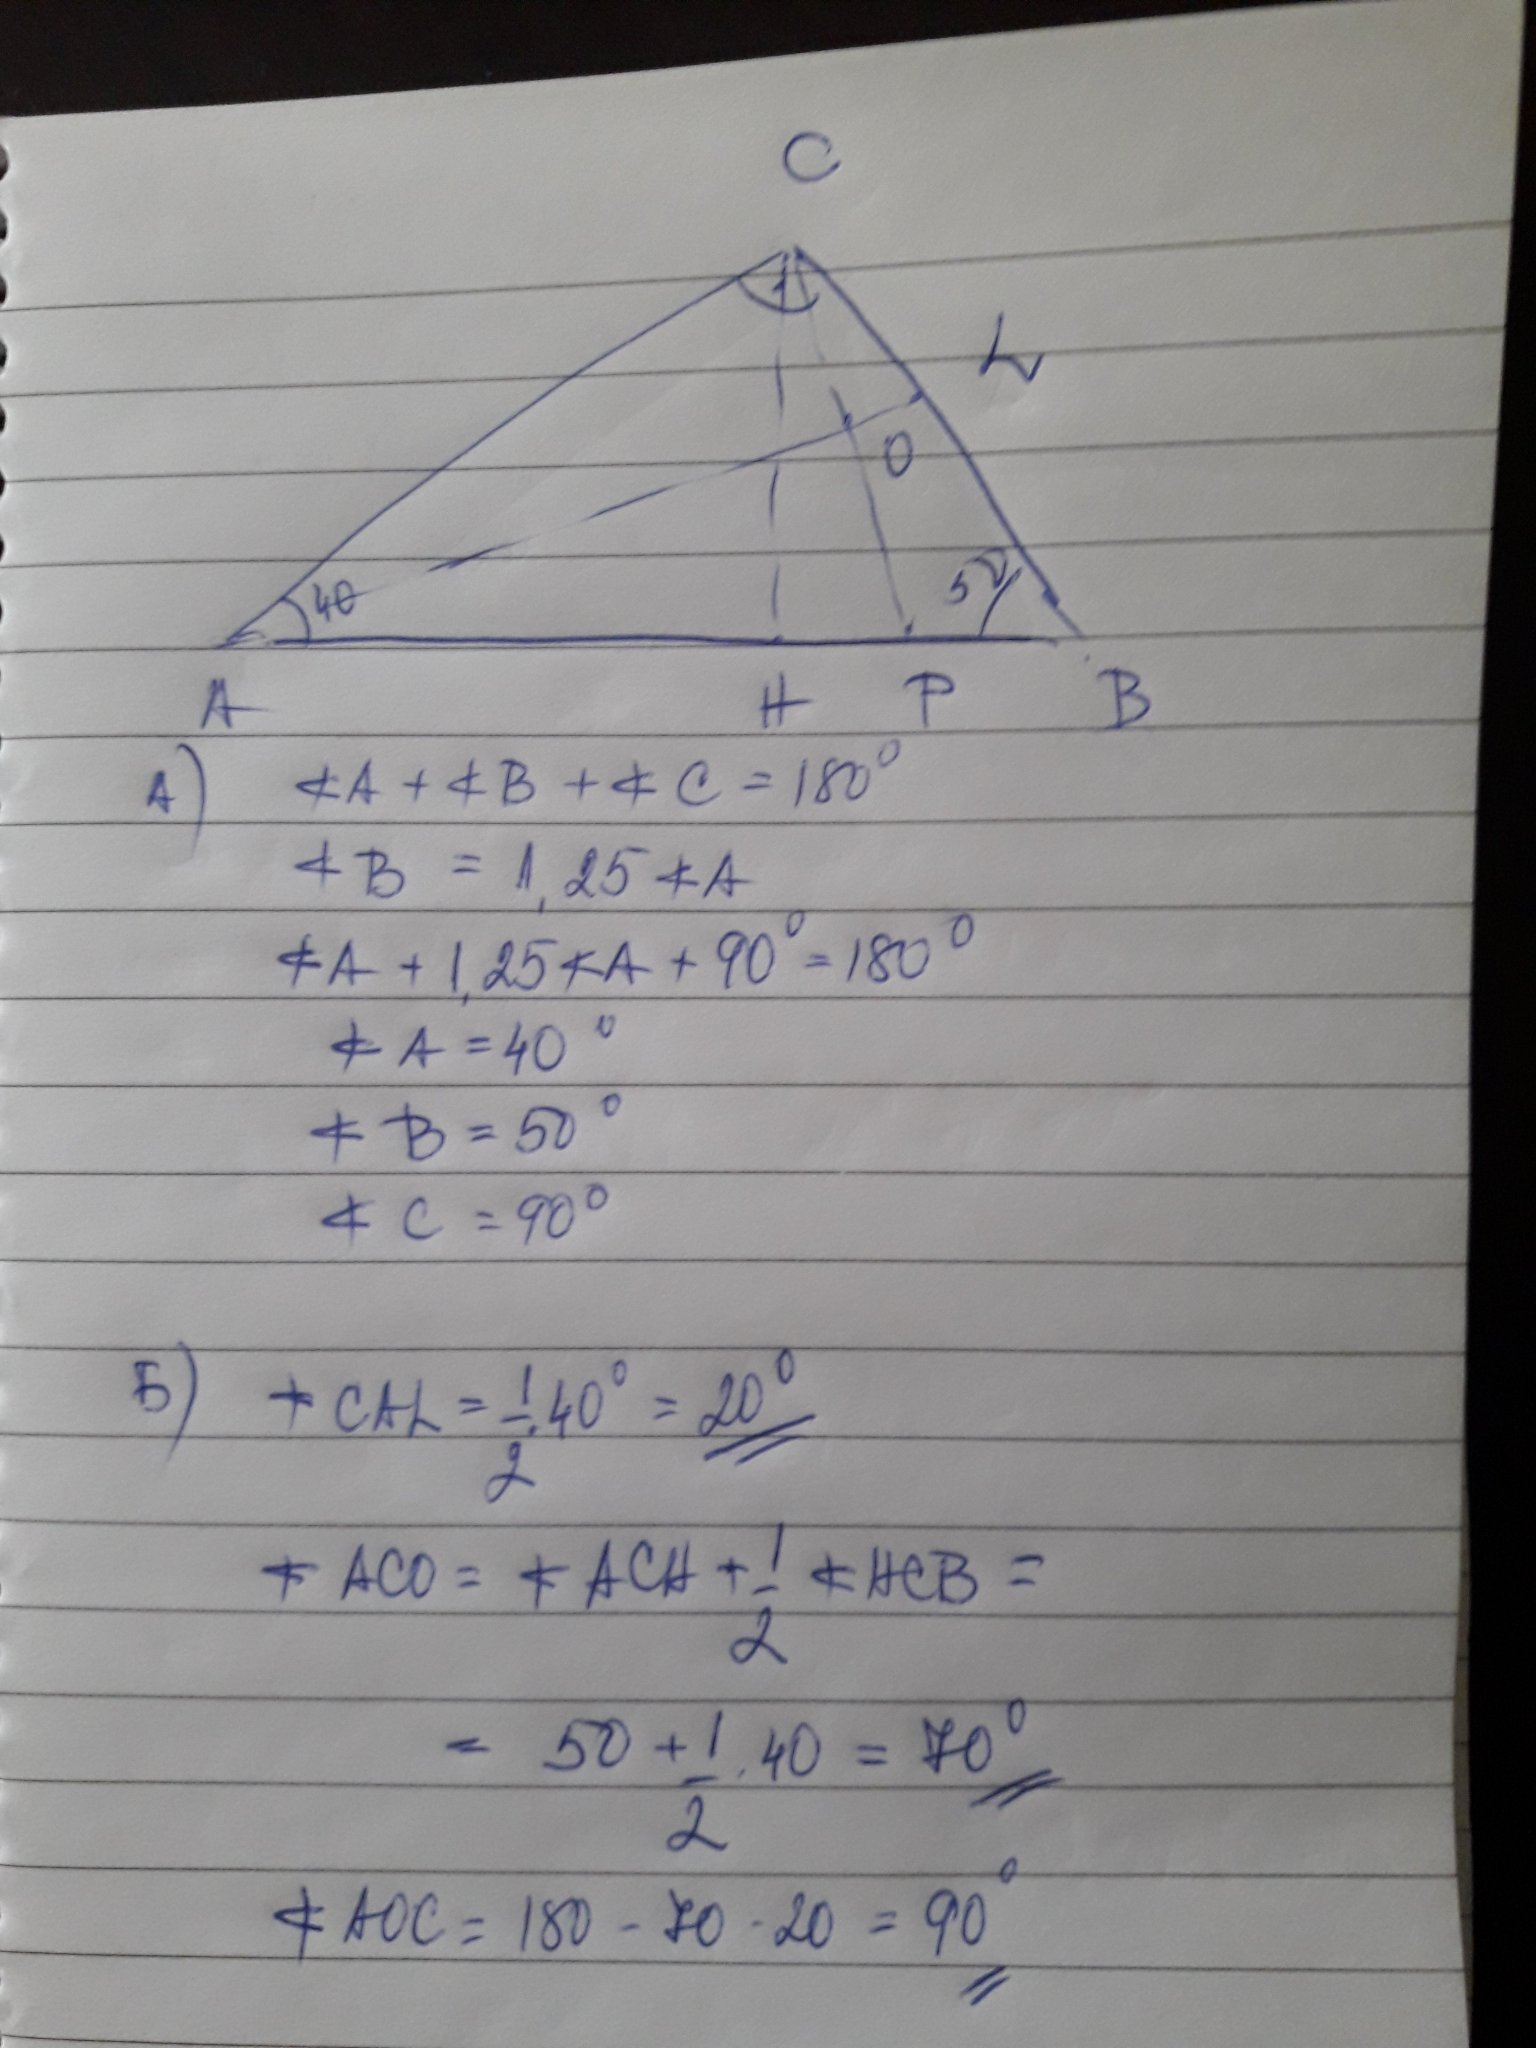 C
L
O
40
50
A H P B
А) ∢A + ∢B + ∢C = 180°
∢B = 1,25 ∢A
∢A + 1,25 ∢A + 90° = 180°
∢A = 40°
∢B = 50°
∢C = 90°
Б) ∢CAL = 1/2 . 40° = 20°
∢ACO = ∢ACH + 1/2 ∢HCB =
= 50 + 1/2 . 40 = 70°
∢AOC = 180 - 70 - 20 = 90°